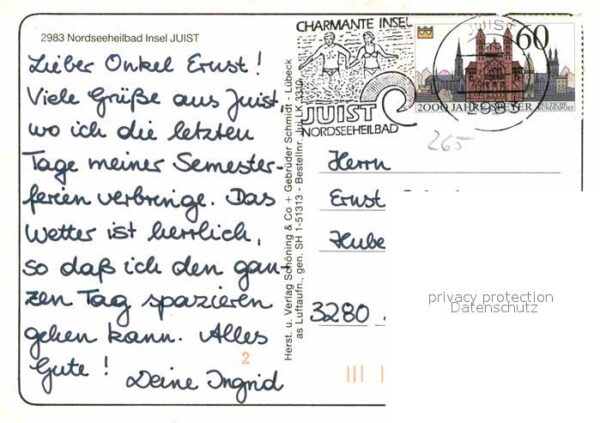 2983 Nordseeheilbad Insel JUIST
Lieber Onkel Ernst!
Viele Grüße aus Juist,
wo ich die letzten
Tage meiner Semester-
ferien verbringe. Das
Wetter ist herrlich,
so daß ich den gan-
zen Tag spazieren
gehen kann. Alles
Gute!
Deine Ingrid
2
Herst. u. Verlag Schöning & Co + Gebrüder Schmidt - Lübeck
as Luftaufn., gen. SH 1-51313 - Bestellnr. Jui LK 3310
CHARMANTE INSEL
JUIST
NORDSEEHEILBAD
JUIST
2983
60
2000 JAHRE SPEYER
DEUTSCHE
BUNDESPOST
265
Herrn
Ernst
Hube
3280
privacy protection
Datenschutz